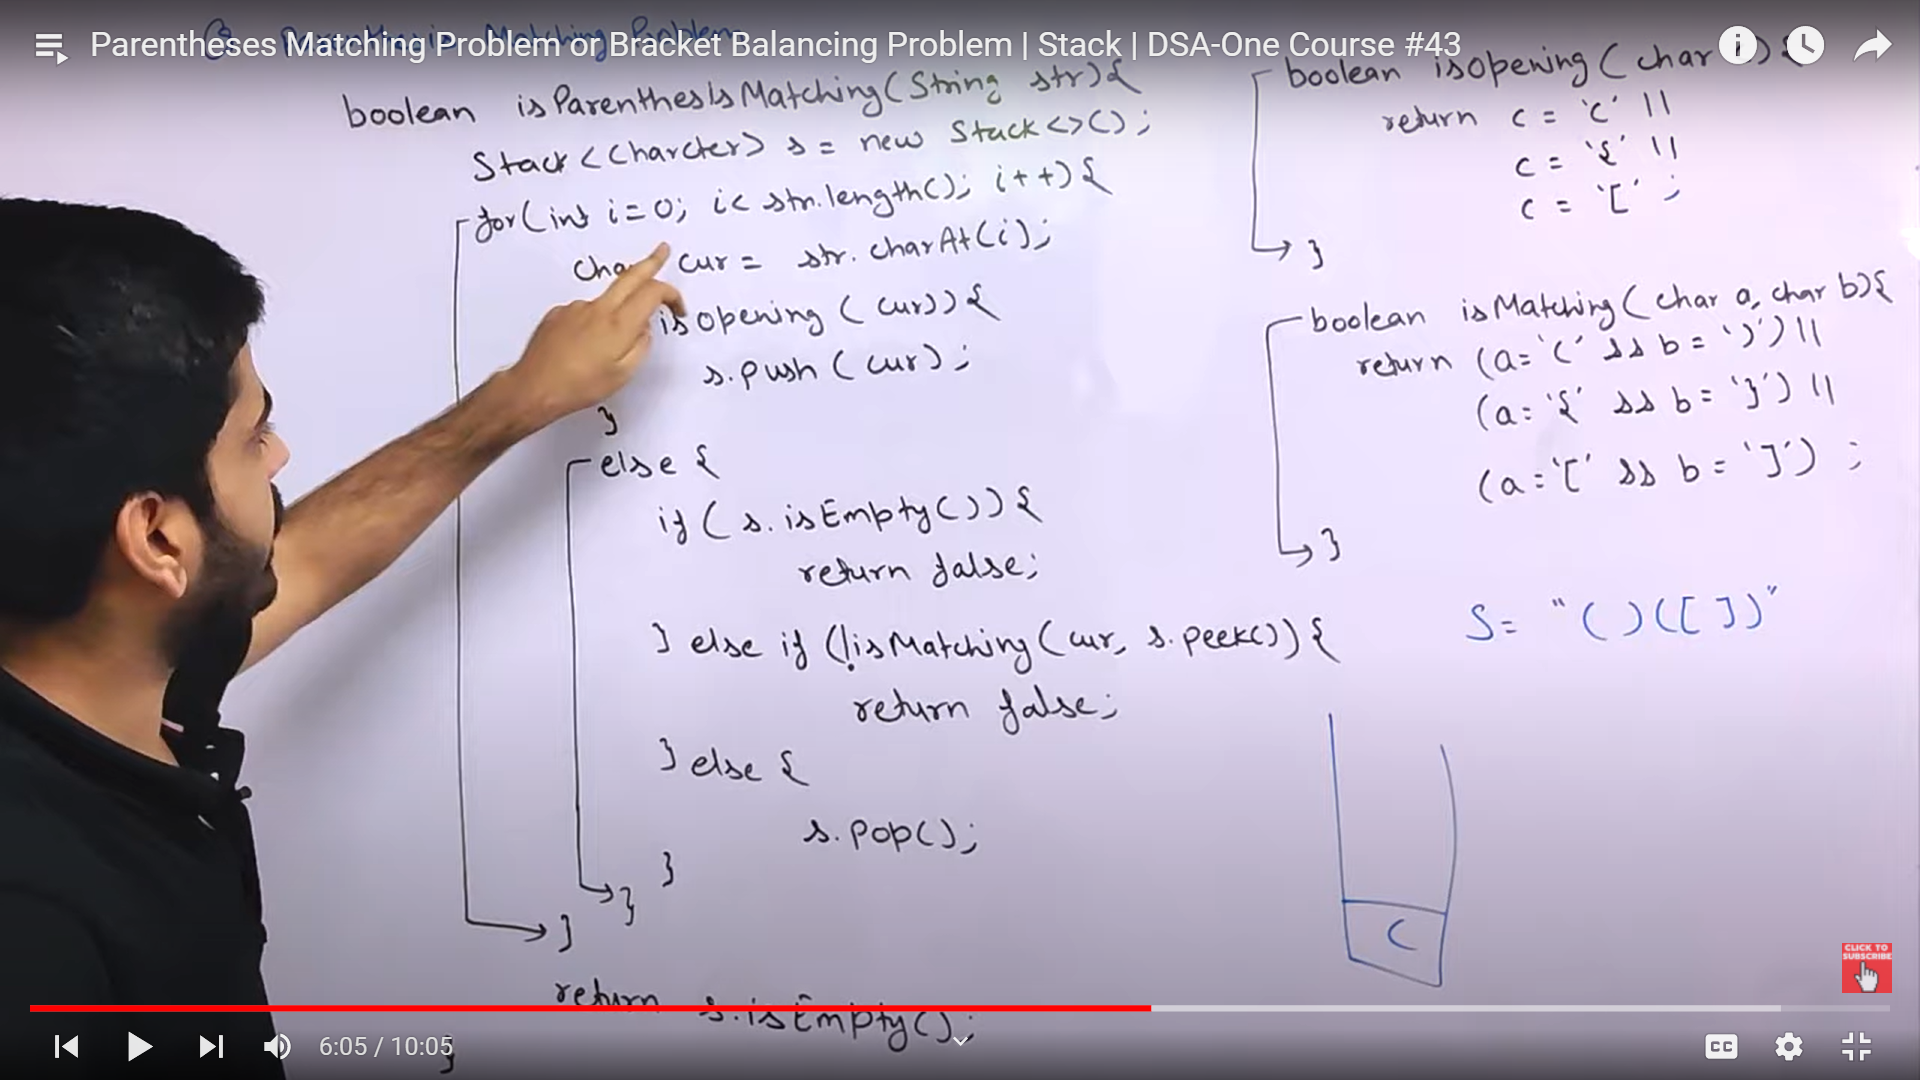 Parentheses Matching Problem or Bracket Balancing Problem | Stack | DSA-One Course #43
boolean isParenthesisMatching(String str){
Stack<Charcter> s = new Stack<>();
for(int i=0; i< str.length(); i++){
cur = str.charAt(i);
isopening (cur)){
s.push(cur);
}
else {
if( s.isEmpty()){
return false;
} else if (!isMatching(cur, s.peek()){
return false;
} else {
s.pop();
}
}
}
return s.isEmpty();
}
boolean isopening(char i){
return c = '(' ||
c = '{' ||
c = '[' ;
}
boolean isMatching(char a, char b){
return (a='(' && b = ')') ||
(a='{' && b = '}') ||
(a='[' && b = ']') ;
}
S= "()([])"
(
CLICK TO
SUBSCRIBE
6:05 / 10:05
CC